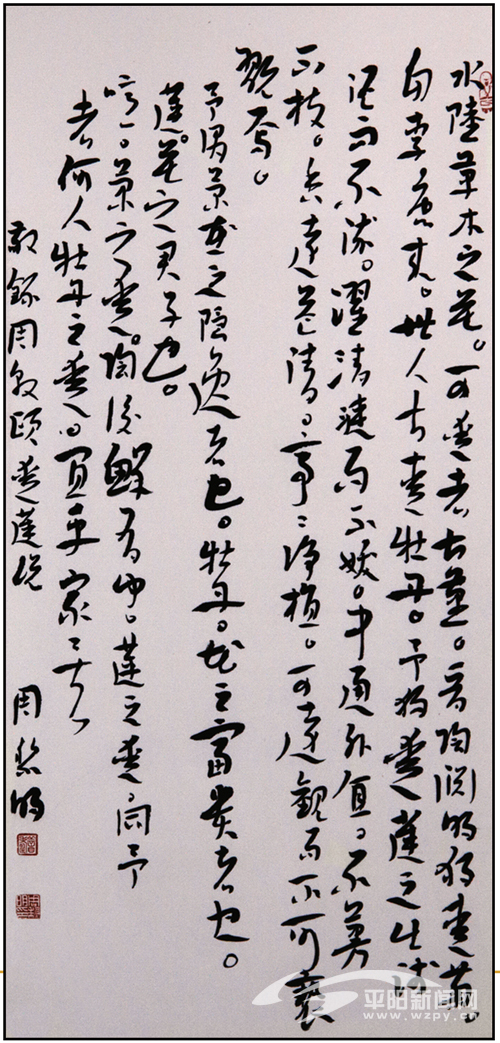 水陸草木之花。可愛者甚蕃。晋陶淵明獨愛菊。
自李唐來。世人甚愛牡丹。予獨愛蓮之出淤
泥而不染。濯清漣而不妖。中通外直。不蔓
不枝。香遠益清。亭〻净植。可遠觀而不可褻
翫焉。
予謂菊花之隱逸者也。牡丹。花之富貴者也。
蓮。花之君子也。
噫。菊之愛。陶後鮮有聞。蓮之愛。同予
者何人牡丹之愛。宜乎衆矣
敬録周敦頤愛蓮說 周 明
平阳新闻网
www.wzpy.cn